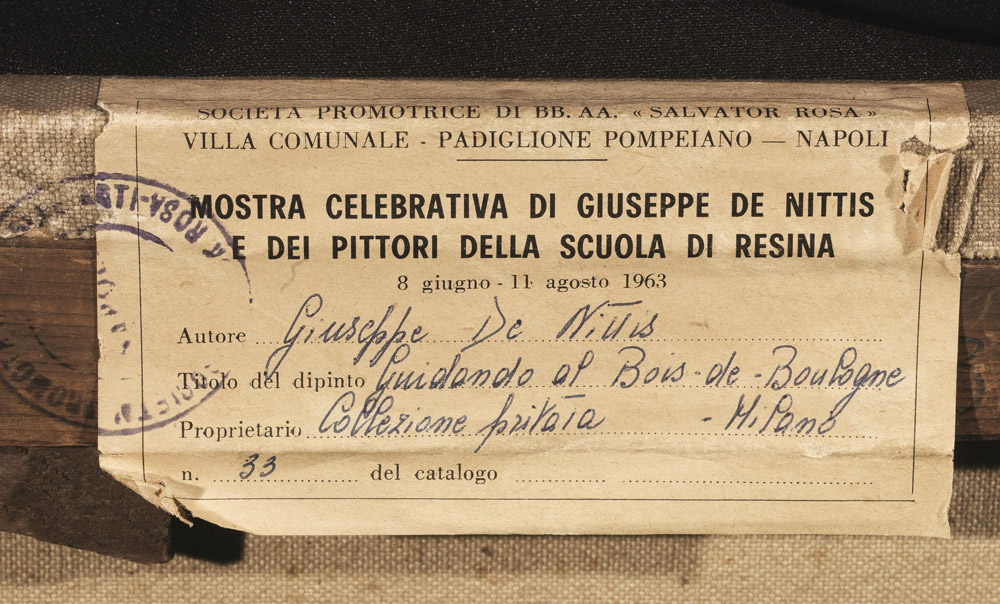 SOCIETÀ PROMOTRICE DI BB. AA. « SALVATOR ROSA »
VILLA COMUNALE - PADIGLIONE POMPEIANO — NAPOLI
MOSTRA CELEBRATIVA DI GIUSEPPE DE NITTIS
E DEI PITTORI DELLA SCUOLA DI RESINA
8 giugno - 11 agosto 1963
Autore Giuseppe De Nittis
Titolo del dipinto Guidando al Bois-de-Boulogne
Proprietario Collezione privata - Milano
n. 33 del catalogo